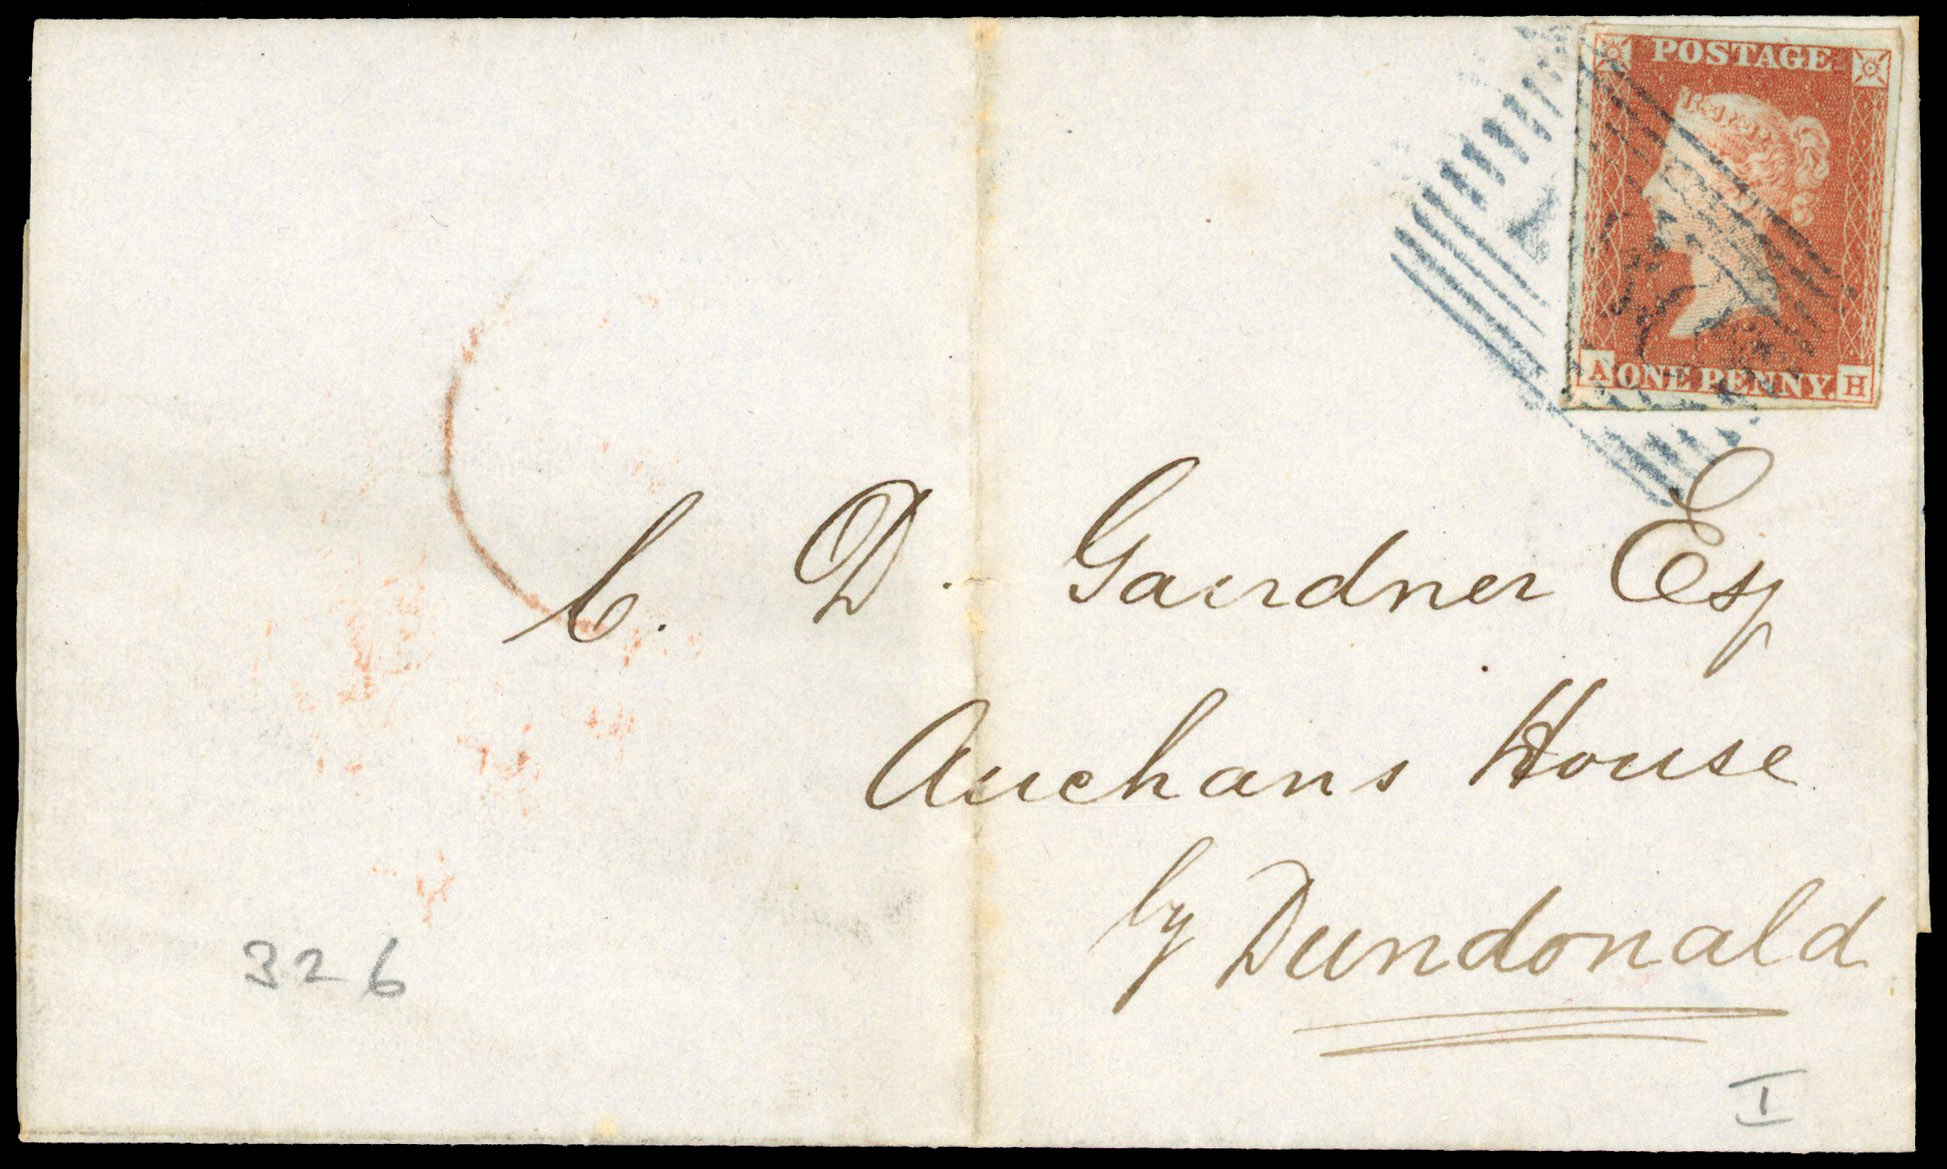 POSTAGE
A ONE PENNY. H
C. D. Gairdner Esq
Auchans House
by Dundonald
326
I